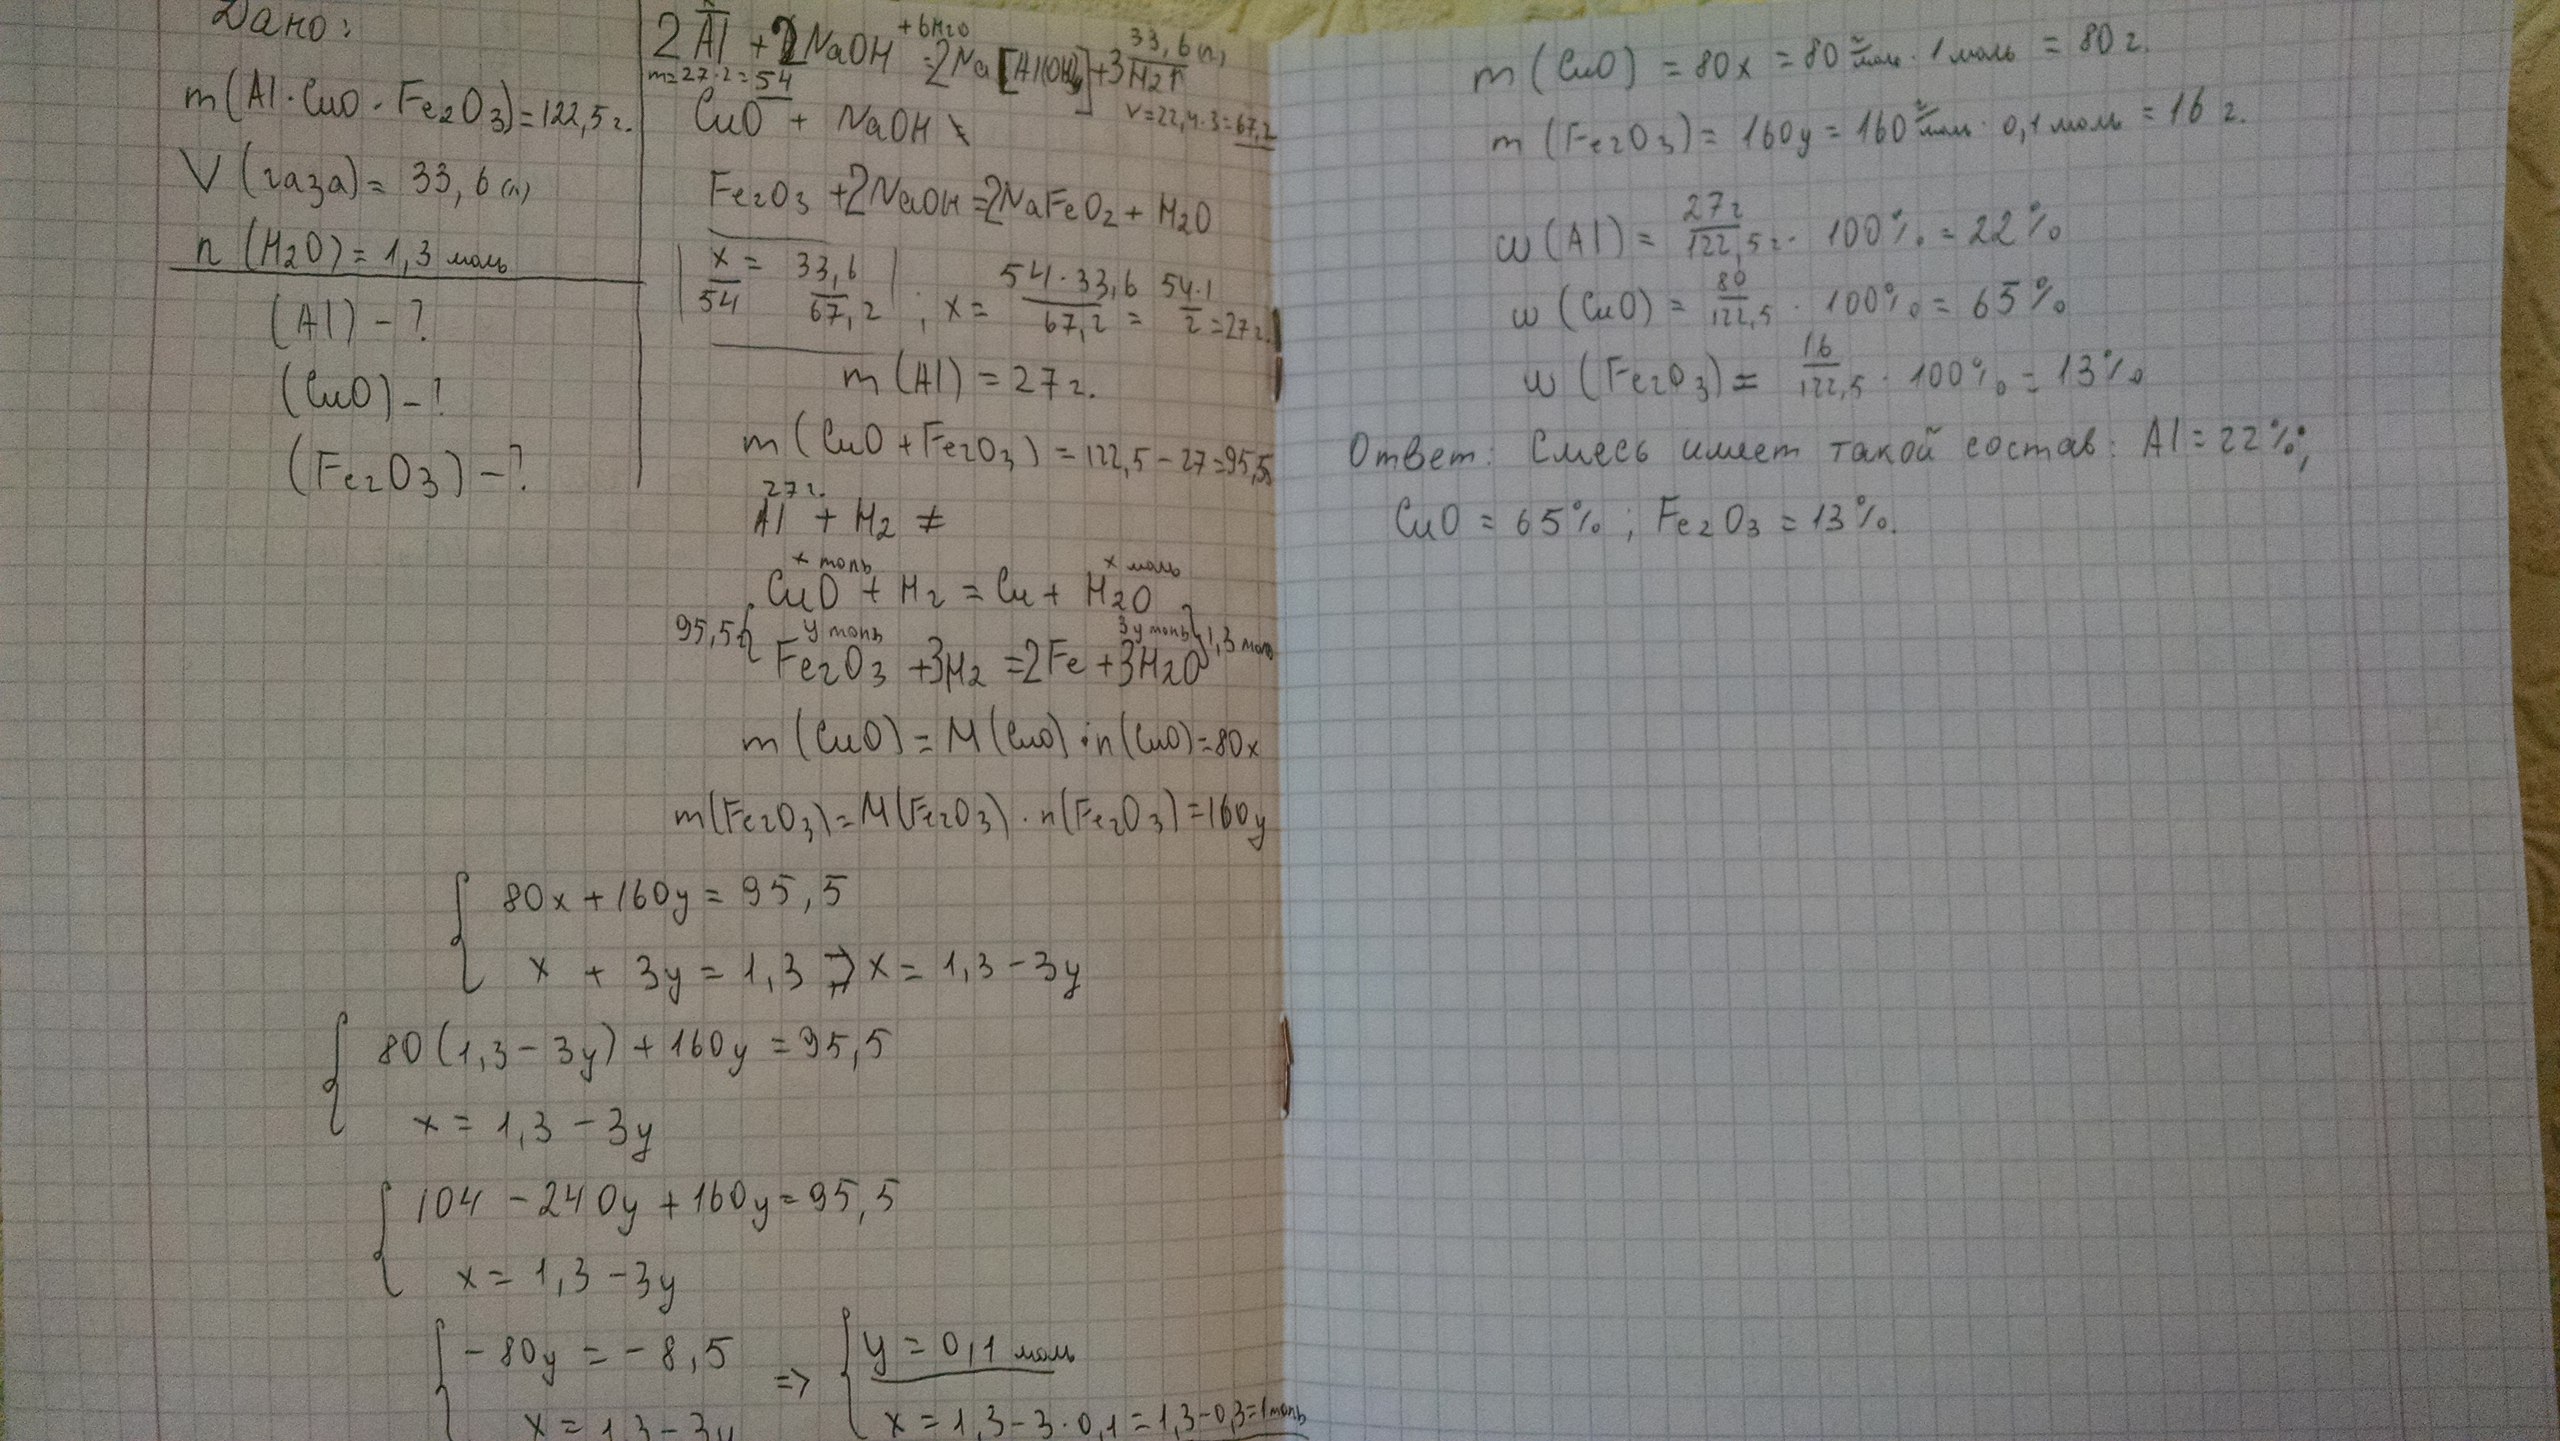 Дано:
m(Al·CuO·Fe2O3)=122,5г.
V(газа)= 33,6(л)
n(H2O)=1,3 моль
(Al)-?
(CuO)-?
(Fe2O3)-?
x 33,6(л)
2Al+2NaOH+6H2O=2Na[Al(OH)4]+3H2↑
m=27·2=54 V=22,4·3=67,2
CuO + NaOH
Fe2O3+2NaOH=2NaFeO2+H2O
x/54 = 33,6/67,2 ; x = 54·33,6/67,2 = 54·1/2 =27г.
m(Al)=27г.
m(CuO+Fe2O3)=122,5-27=95,5
27г.
Al + H2 ≠
x моль x моль
CuO+H2=Cu+H2O
95,5г { y моль 3y моль } 1,3 моль
Fe2O3+3H2=2Fe+3H2O
m(CuO)=M(CuO)·n(CuO)=80x
m(Fe2O3)=M(Fe2O3)·n(Fe2O3)=160y
80x+160y=95,5
x + 3y = 1,3 => x=1,3-3y
80(1,3-3y)+160y=95,5
x=1,3-3y
104-240y+160y=95,5
x=1,3-3y
-80y=-8,5 => y=0,1 моль
x=1,3-3y x=1,3-3·0,1=1,3-0,3=1моль
m(CuO)=80x=80 г/моль·1моль=80г.
m(Fe2O3)=160y=160 г/моль·0,1моль=16г.
w(Al)= 27г/122,5г · 100%=22%
w(CuO)= 80/122,5 · 100%=65%
w(Fe2O3)= 16/122,5 · 100%=13%
Ответ: Смесь имеет такой состав: Al=22%;
CuO=65%; Fe2O3=13%.